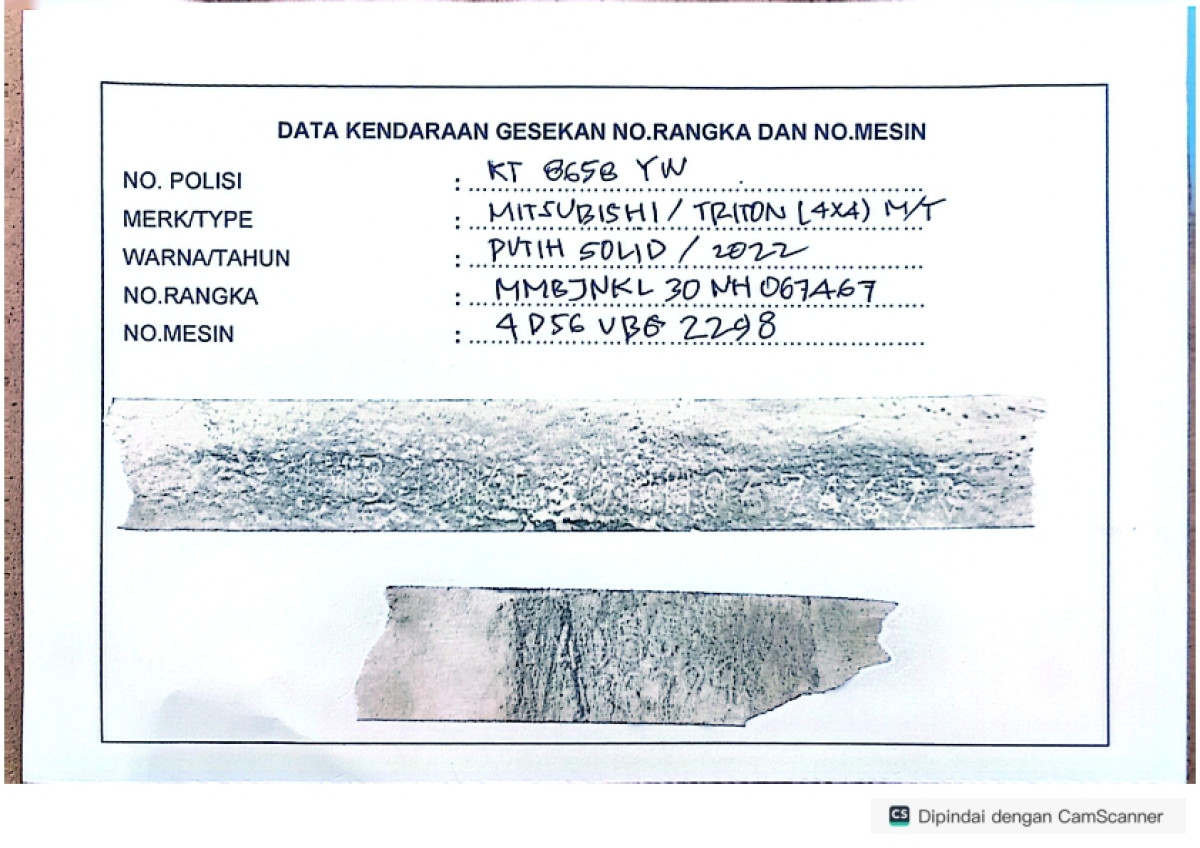 DATA KENDARAAN GESEKAN NO.RANGKA DAN NO.MESIN
NO. POLISI : KT 8658 YW
MERK/TYPE : MITSUBISHI / TRITON (4X4) M/T
WARNA/TAHUN : PUTIH SOLID / 2022
NO.RANGKA : MMBJNKL 30 NH 067467
NO.MESIN : 4D56 2298
CS Dipindai dengan CamScanner